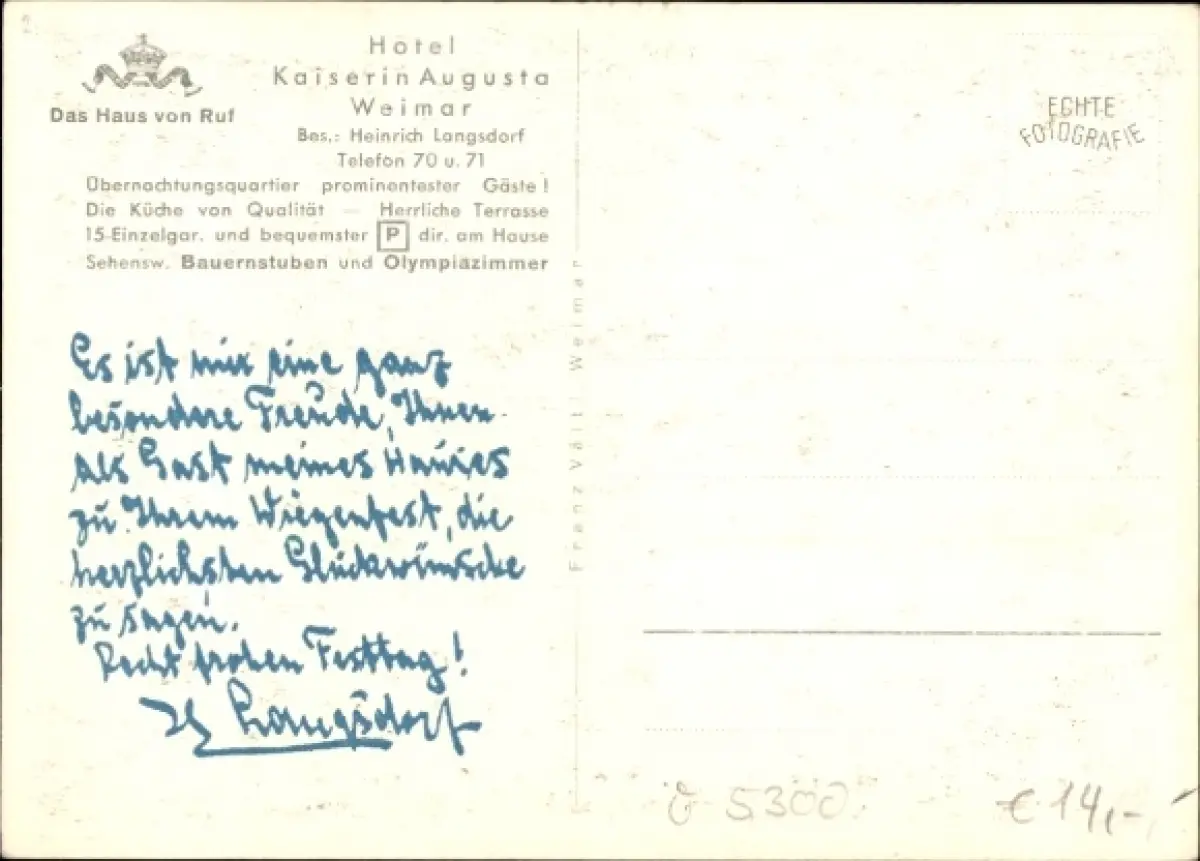 Das Haus von Ruf
Hotel
Kaiserin Augusta
Weimar
Bes.: Heinrich Langsdorf
Telefon 70 u. 71
Übernachtungsquartier prominentester Gäste!
Die Küche von Qualität — Herrliche Terrasse
15-Einzelgar. und bequemster P dir. am Hause
Sehensw. Bauernstuben und Olympiazimmer
Es ist mir eine ganz
besondere Freude, Ihnen
als Gast meines Hauses
zu Ihrem Wiegenfest, die
herzlichsten Glückwünsche
zu sagen.
Recht frohen Festtag!
Langsdorf
Franz Weimar
ECHTE
FOTOGRAFIE
5300
€ 14,-